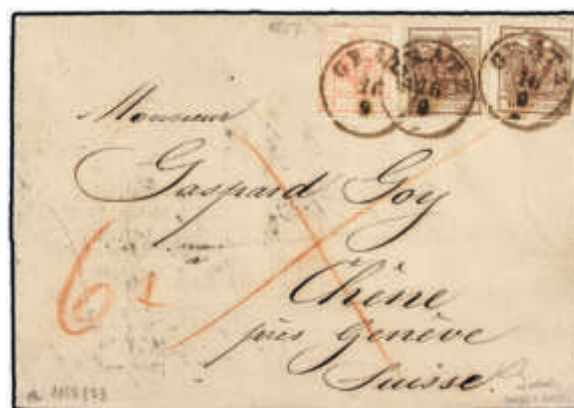 GRATZ
16
9
GRATZ
16
9
GRATZ
16
9
Monsieur
Gaspard Goy
6x
Chêne
près Genève
Suisse.